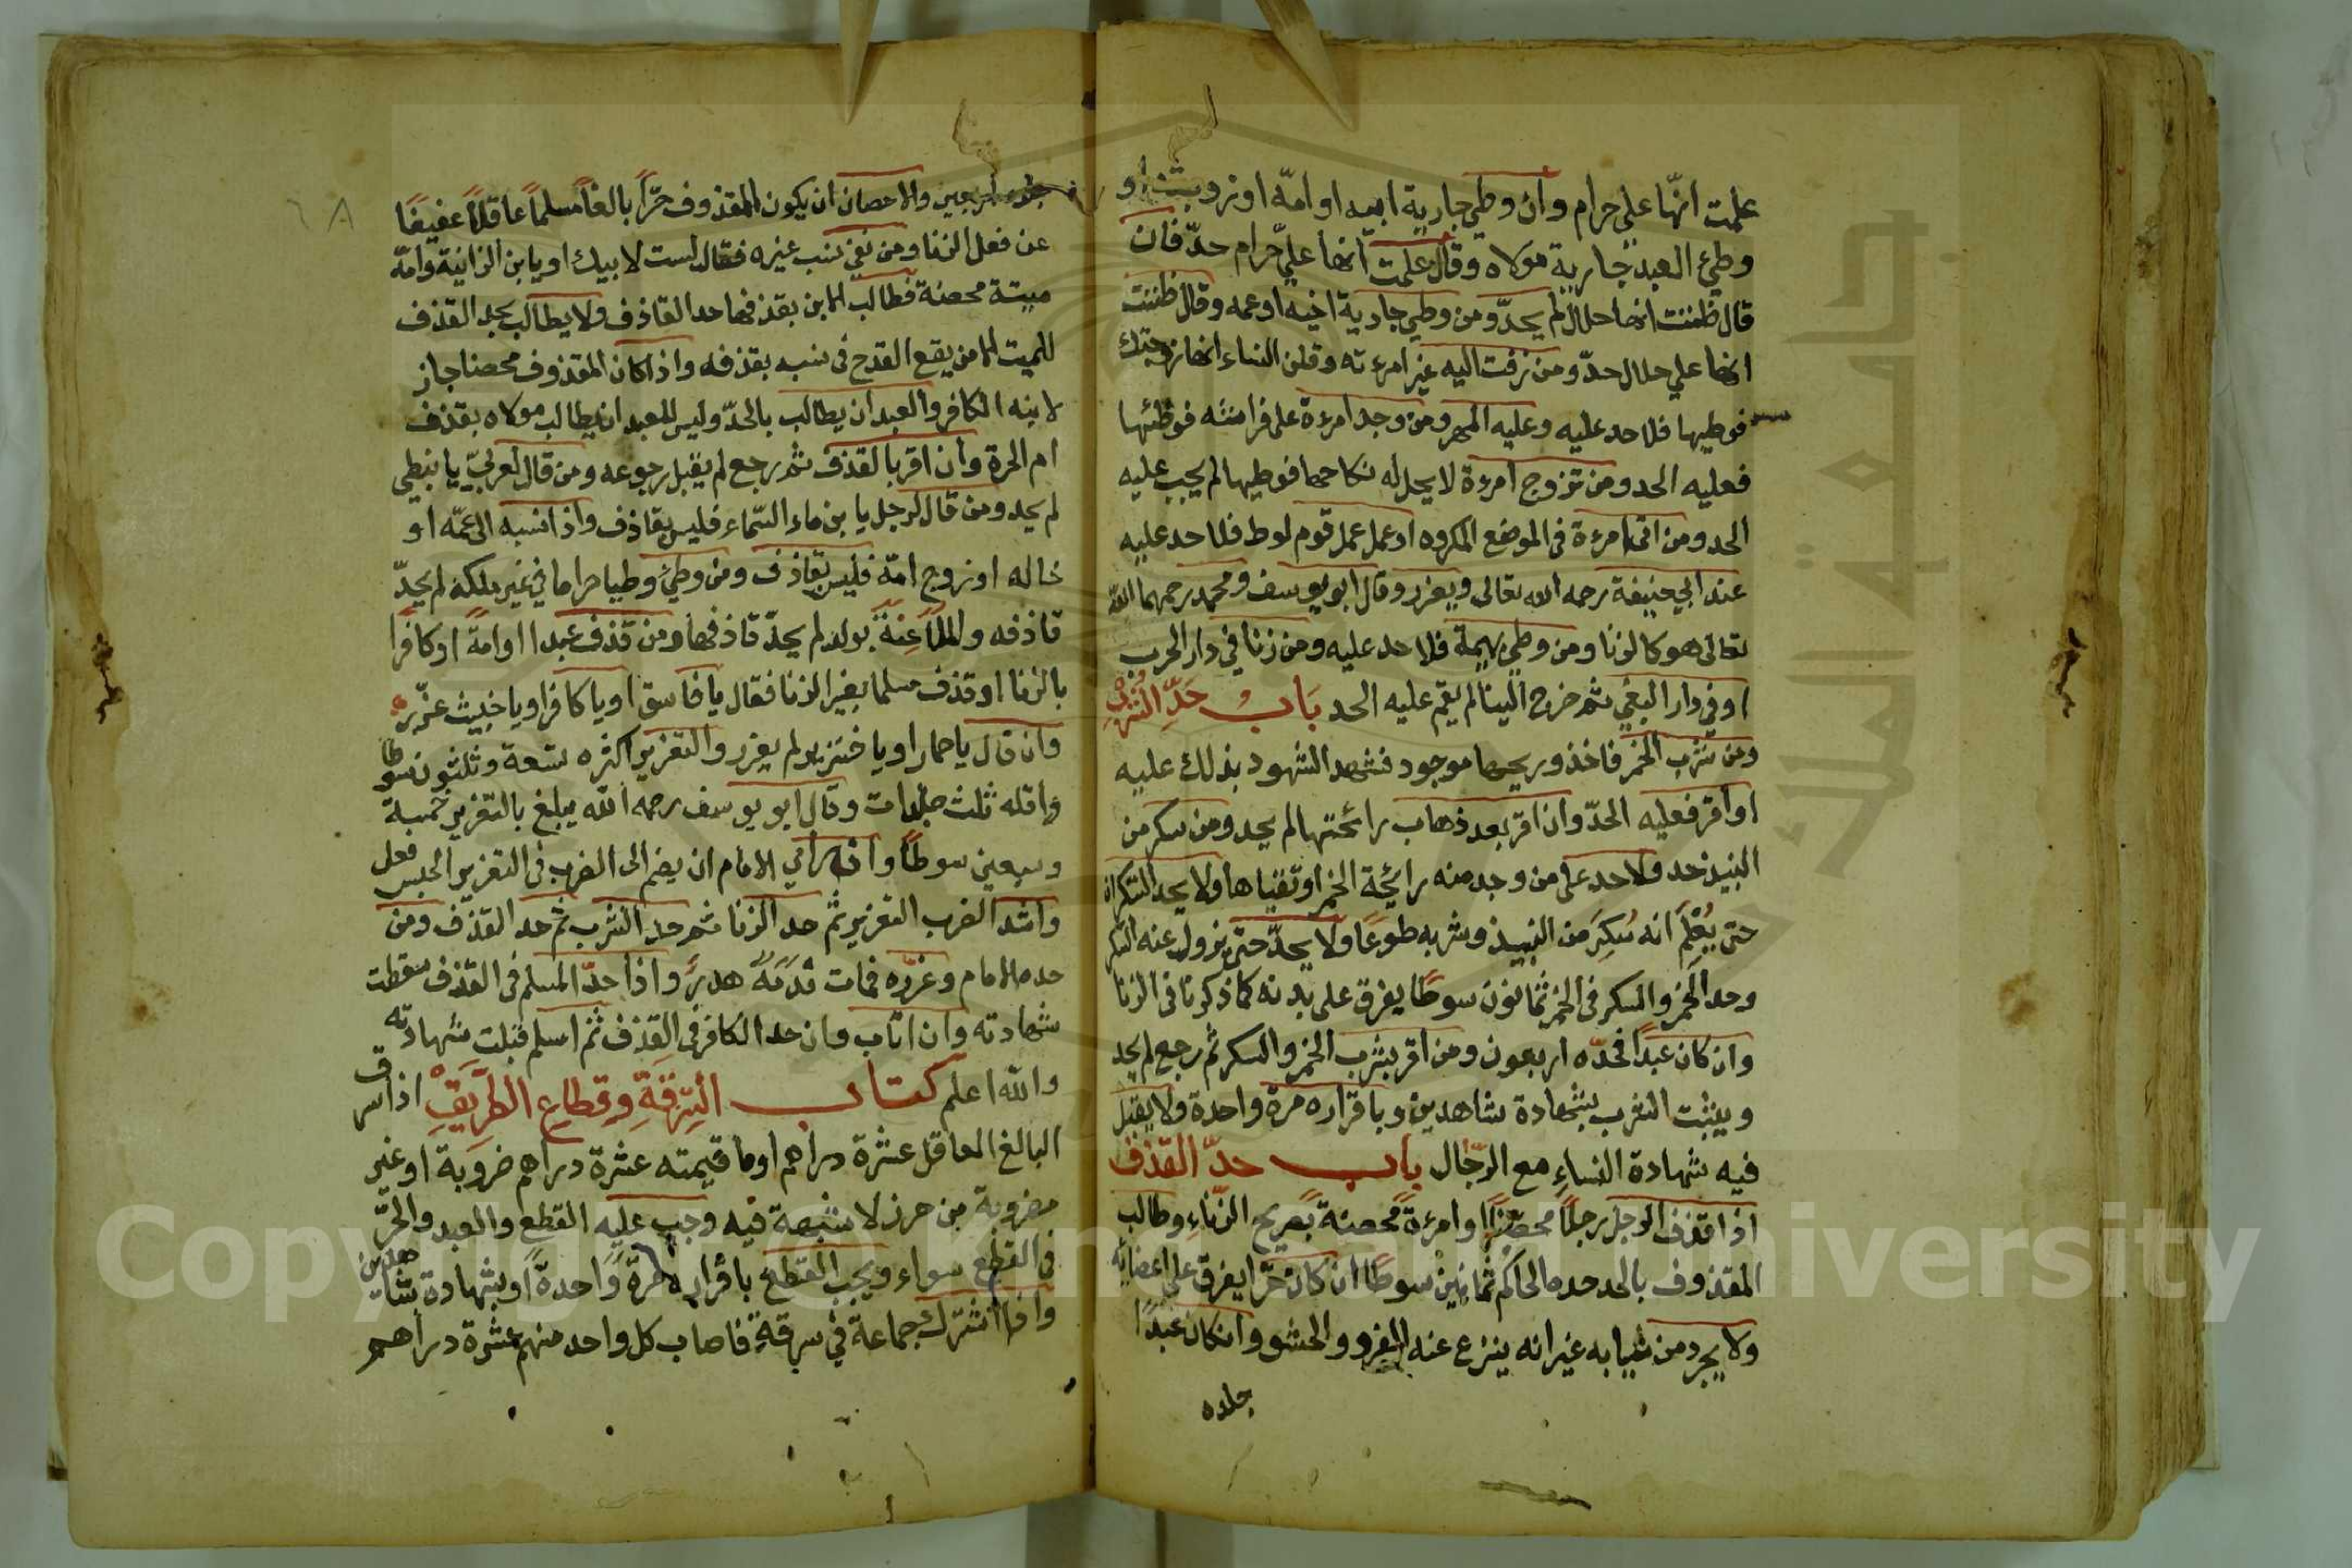 علمت انّها علي حرام وان وطي جارية ابيه او امّه او زوجته او
وطئ العبد جارية مولاه وقال علمت انها عليّ حرام حدّ فان
قال ظننت انها حلال لم يحدّ ومن وطي جارية اخيه او عمه وقال ظننت
انها علي حلال حدّ ومن زفت اليه غير امرءته وقلن النساء انها زوجتك
فوطيها فلا حد عليه وعليه المهر ومن وجد امرءة على فراشه فوطئها
فعليه الحد ومن تزوج امرءة لا يحل له نكاحها فوطيها لم يجب عليه
الحد ومن اتى امرءة في الموضع المكروه او عمل عمل قوم لوط فلا حد عليه
عند ابي حنيفة رحمه الله تعالى ويعزر وقال ابو يوسف ومحمد رحمهما الله
تعالى هو كالزنا ومن وطي بهيمة فلا حد عليه ومن زنا في دار الحرب
او في دار البغي ثم خرج الينا لم يقم عليه الحد باب حدّ الشرب
ومن شرب الخمر فاخذ وريحها موجود فشهد الشهود بذلك عليه
او اقر فعليه الحدّ وان اقر بعد ذهاب رائحتها لم يحد ومن سكر من
النبيذ حد ولا حد على من وجد منه رائحة الخمر او تقياها ولا يحد السكران
حتى يُعْلَمَ انه سُكِرَ من النبيذ وشربه طوعًا ولا يحدّ حتى يزول عنه السكر
وحد الخمر والسكر في الخمر ثمانون سوطًا يفرق على بدنه كما ذكرنا في الزنا
وان كان عبدًا فحدّه اربعون ومن اقر بشرب الخمر والسكر ثم رجع لم يحد
ويثبت الشرب بشهادة شاهدين وباقراره مرة واحدة ولا يقبل
فيه شهادة النساء مع الرّجال باب حدّ القذف
اذا قذف الرجل رجلًا محصنًا او امرءةً محصنة بصريح الزّناء وطالب
المقذوف بالحد حده الحاكم ثمانين سوطًا ان كان حرّا يفرق على اعضايه
ولا يجرد من ثيابه غير انه ينزع عنه الفرو والحشو وان كان عبدًا
جلده
٦٨
جلده اربعين والاحصان ان يكون المقذوف حرّاً بالغاً مسلماً عاقلاً عفيفًا
عن فعل الزنا ومن نفى نسب غيره فقال لست لابيك او يا بن الزانية وامّه
ميتة محصنة فطالب الابن بقذفها حد القاذف ولا يطالب بحد القذف
للميت الا من يقع القدح في نسبه بقذفه واذا كان المقذوف محصنا جاز
لابنه الكافر والعبد ان يطالب بالحدّ وليس للعبد ان يطالب مولاه بقذف
ام الحرة وان اقر بالقذف ثم رجع لم يقبل رجوعه ومن قال لعربيّ يا نبطي
لم يحد ومن قال لرجل يا بن ماء السّماء فليس بقاذف واذا نسبه الى عمّه او
خاله او زوج امّه فليس بقاذف ومن وطئ وطيا حراما في غير ملكه لم يحدّ
قاذفه والملاعِنَةُ بولد لم يحدّ قاذفها ومن قذف عبدا او امةً او كافرًا
بالزنا او قذف مسلما بغير الزنا فقال يا فاسق او يا كافر او يا خبيث عزّر
وان قال يا حمار او يا خنزير لم يعزر والتعزير اكثره تسعة وثلثون سوطا
واقله ثلث جلدات وقال ابو يوسف رحمه الله يبلغ بالتعزير خمسة
وسبعين سوطاً وان رأي الامام ان يضم الى الضرب في التعزير الحبس فعل
واشد الضرب التعزير ثم حد الزنا ثم حد الشرب ثم حد القذف ومن
حده الامام وعزّره فمات فدَمَهُ هدرٌ واذا حدّ المسلم في القذف سقطت
شهادته وان تاب وان حد الكافر في القذف ثم اسلم قبلت شهادته
والله اعلم كتاب السّرقة وقطاع الطّريق اذا سرق
البالغ العاقل عشرة دراهم او ما قيمته عشرة دراهم مضروبة او غير
مضروبة من حرز لا شبهة فيه وجب عليه القطع والعبد والحرّ
في القطع سواء ويجب القطع باقراره مرة واحدةً او بشهادة شاهدين
واذا اشترك جماعة في سرقةٍ فاصاب كل واحد منهم عشرة دراهم
جامعة الملك سعود
Copyright © King Saud University